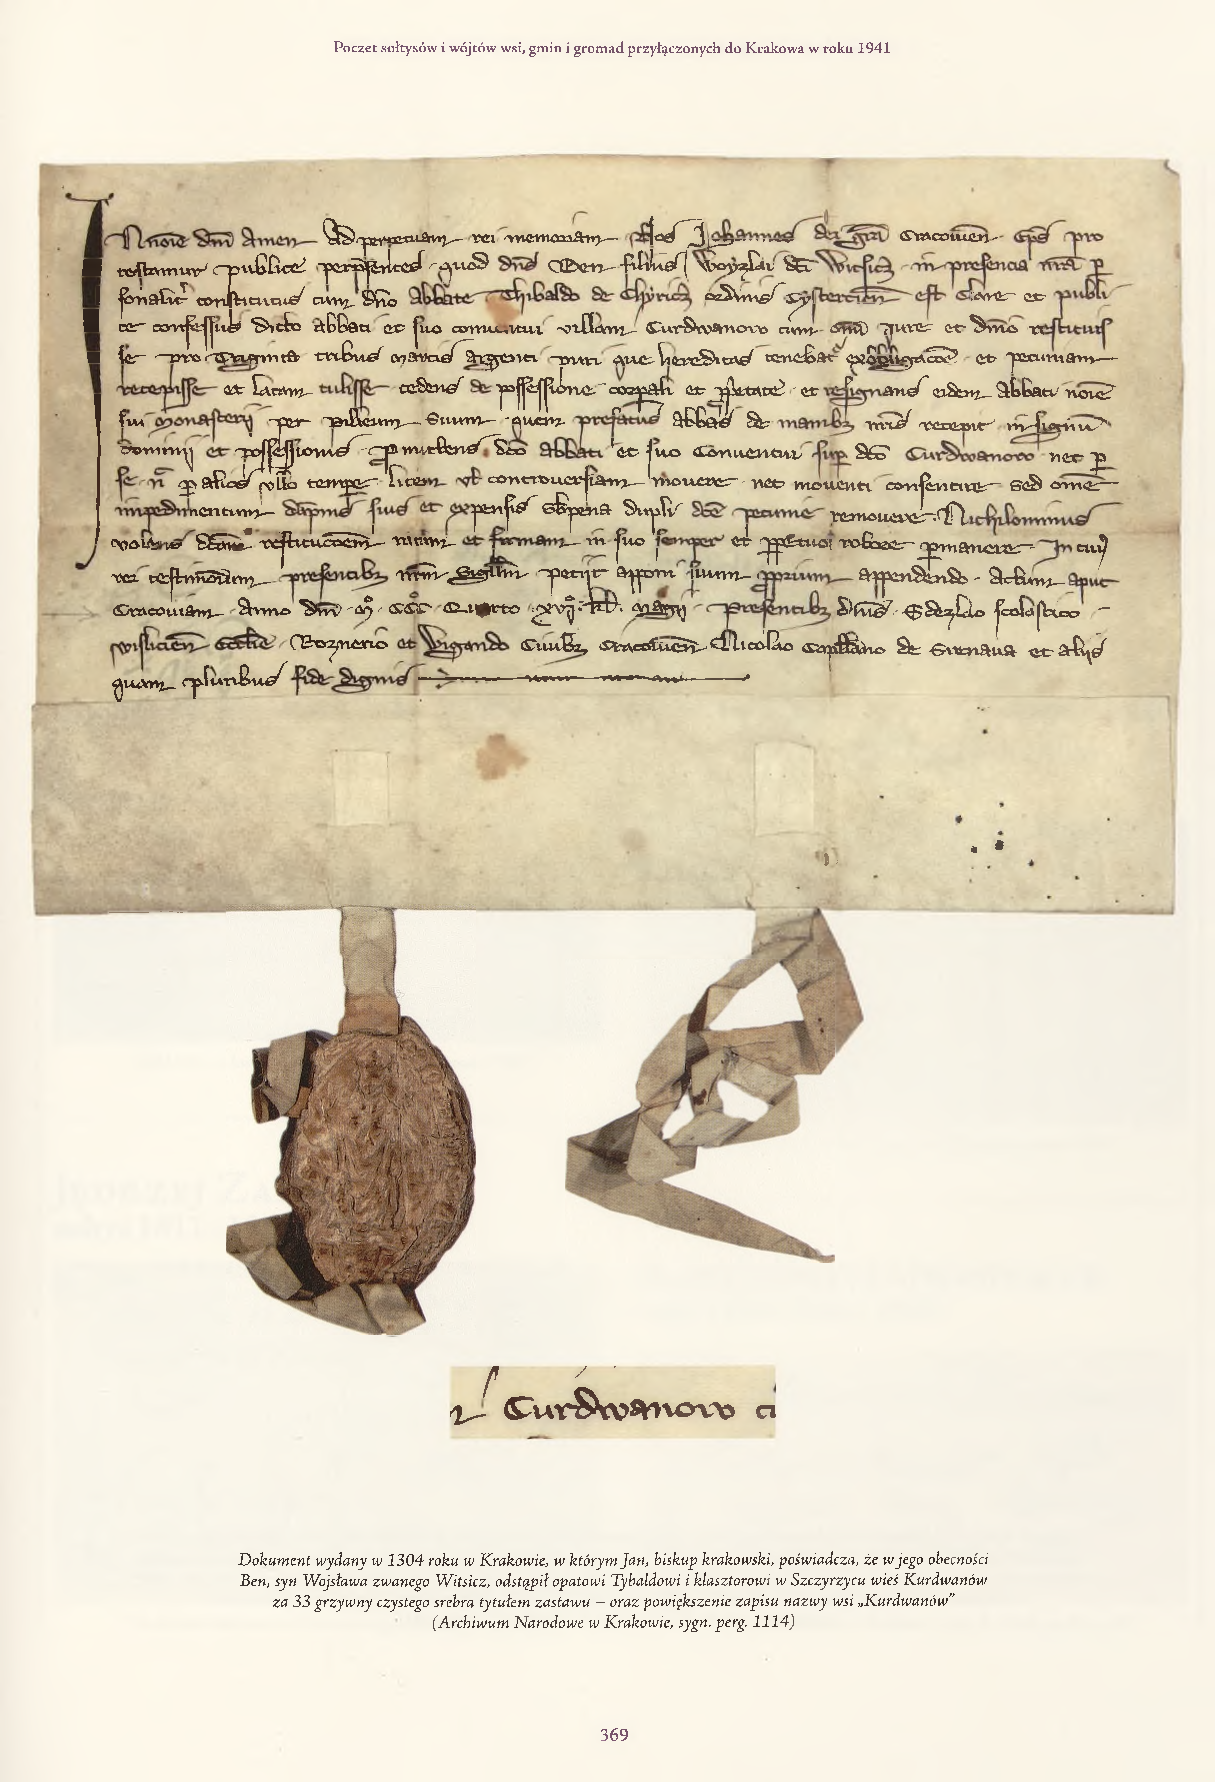 Poczet sołtysów i wójtów wsi, gmin i gromad przyłączonych do Krakowa w roku 1941
In noīe dnī Amen Ad perpetuam rei memoriam Nos Johannes dei grā Cracouiēn Eps̄ pro
testamur publice per presentes quod dn̄s Ben filius Woyzlai dc̄i Witsicz in presencia nr̄a p̄
sonalit̄ constitutus cum dn̄o abbate Thibaldo de Chyricz ordinis Cysterciēn est Core et publi
ce confessus dicto abbati et suo conuentui villam Curdwanow cum om̄i Jure et dn̄io restituis
se pro Triginta tribus marcis argenti puri que hereditas tenebat̄ et pecuniam
recepisse et latam tulisse cedens de possessione corp̄ali et et resignans eidem abbati noīe
sui monasterij per pilleum suum quem prefatus abbas de manibꝫ nr̄is recepit in signū
dominij et possessionis Promittens dc̄o abbati et suo Conuentui sup̄ dc̄o Curdwanow nec p̄
se n̄ p̄ alios vllo tempe litem vl̄ controuersiam mouere nec mouenti consentire sed om̄e
impedimentum suis et expensis sb̄ pena dupli dc̄e pecunie remouere Nichilominus
volens dc̄am restitucōem ratam et firmam in suo semper et robore p̄manere In cuiꝰ
rei testimōium presentibꝫ nr̄m Sigillm̄ petijt apponi suum prop̄rium appendendo Actum aput
Cracouiam Anno dn̄i mº CCCº Quarto xvjº kl̄ Magij Presentibꝫ Sdezlao scolastico
wislicien̄ Ecclīe Roznerio et Wigando Ciuibꝫ Cracouien̄ Nicolao Capellano de Sirnaua et alijs
quam pluribus fide dignis
Curdwanow ci
Dokument wydany w 1304 roku w Krakowie, w którym Jan, biskup krakowski, poświadcza, że w jego obecności
Ben, syn Wojsława zwanego Witsicz, odstąpił opatowi Tybaldowi i klasztorowi w Szczyrzycu wieś Kurdwanów
za 33 grzywny czystego srebra tytułem zastawu – oraz powiększenie zapisu nazwy wsi „Kurdwanów”
(Archiwum Narodowe w Krakowie, sygn. perg. 1114)
369